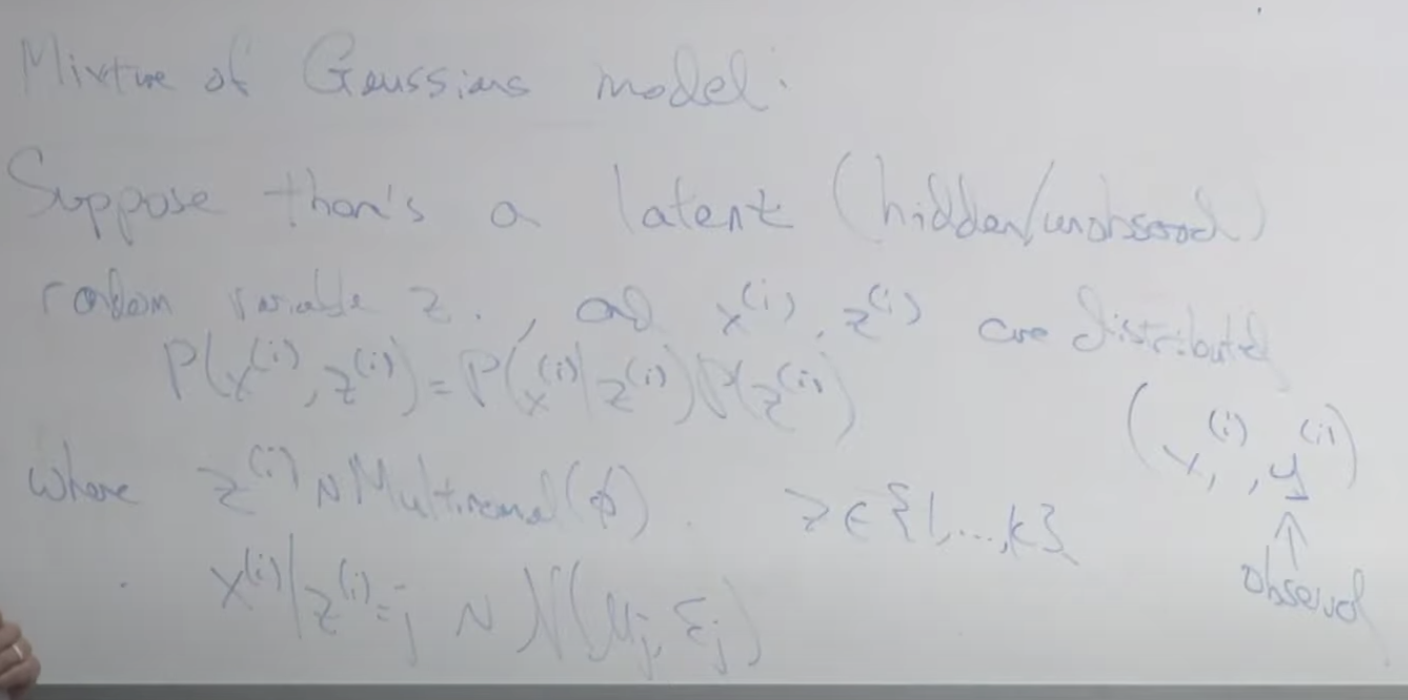 Mixture of Gaussians model:
Suppose there's a latent (hidden/unobserved)
random variable z., and x^(i), z^(i) are distributed
P(x^(i), z^(i)) = P(x^(i)|z^(i))P(z^(i))
(x^(i), y^(i))
where z^(i) ~ Multinomial(φ). z ∈ {1,...,k}
↑
observed
x^(i)|z^(i)=j ~ N(μj, Σj)